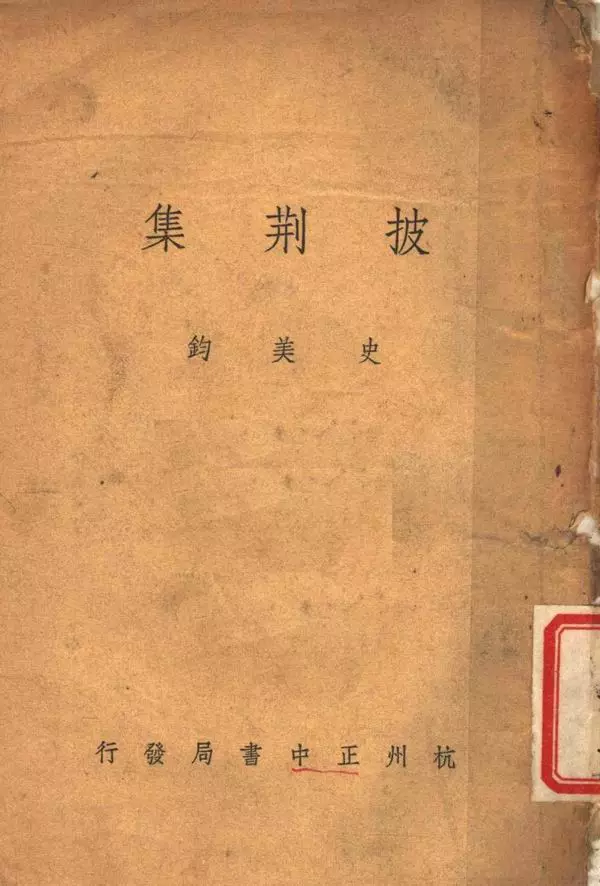 披荆集
史美鈞
杭州正中書局發行